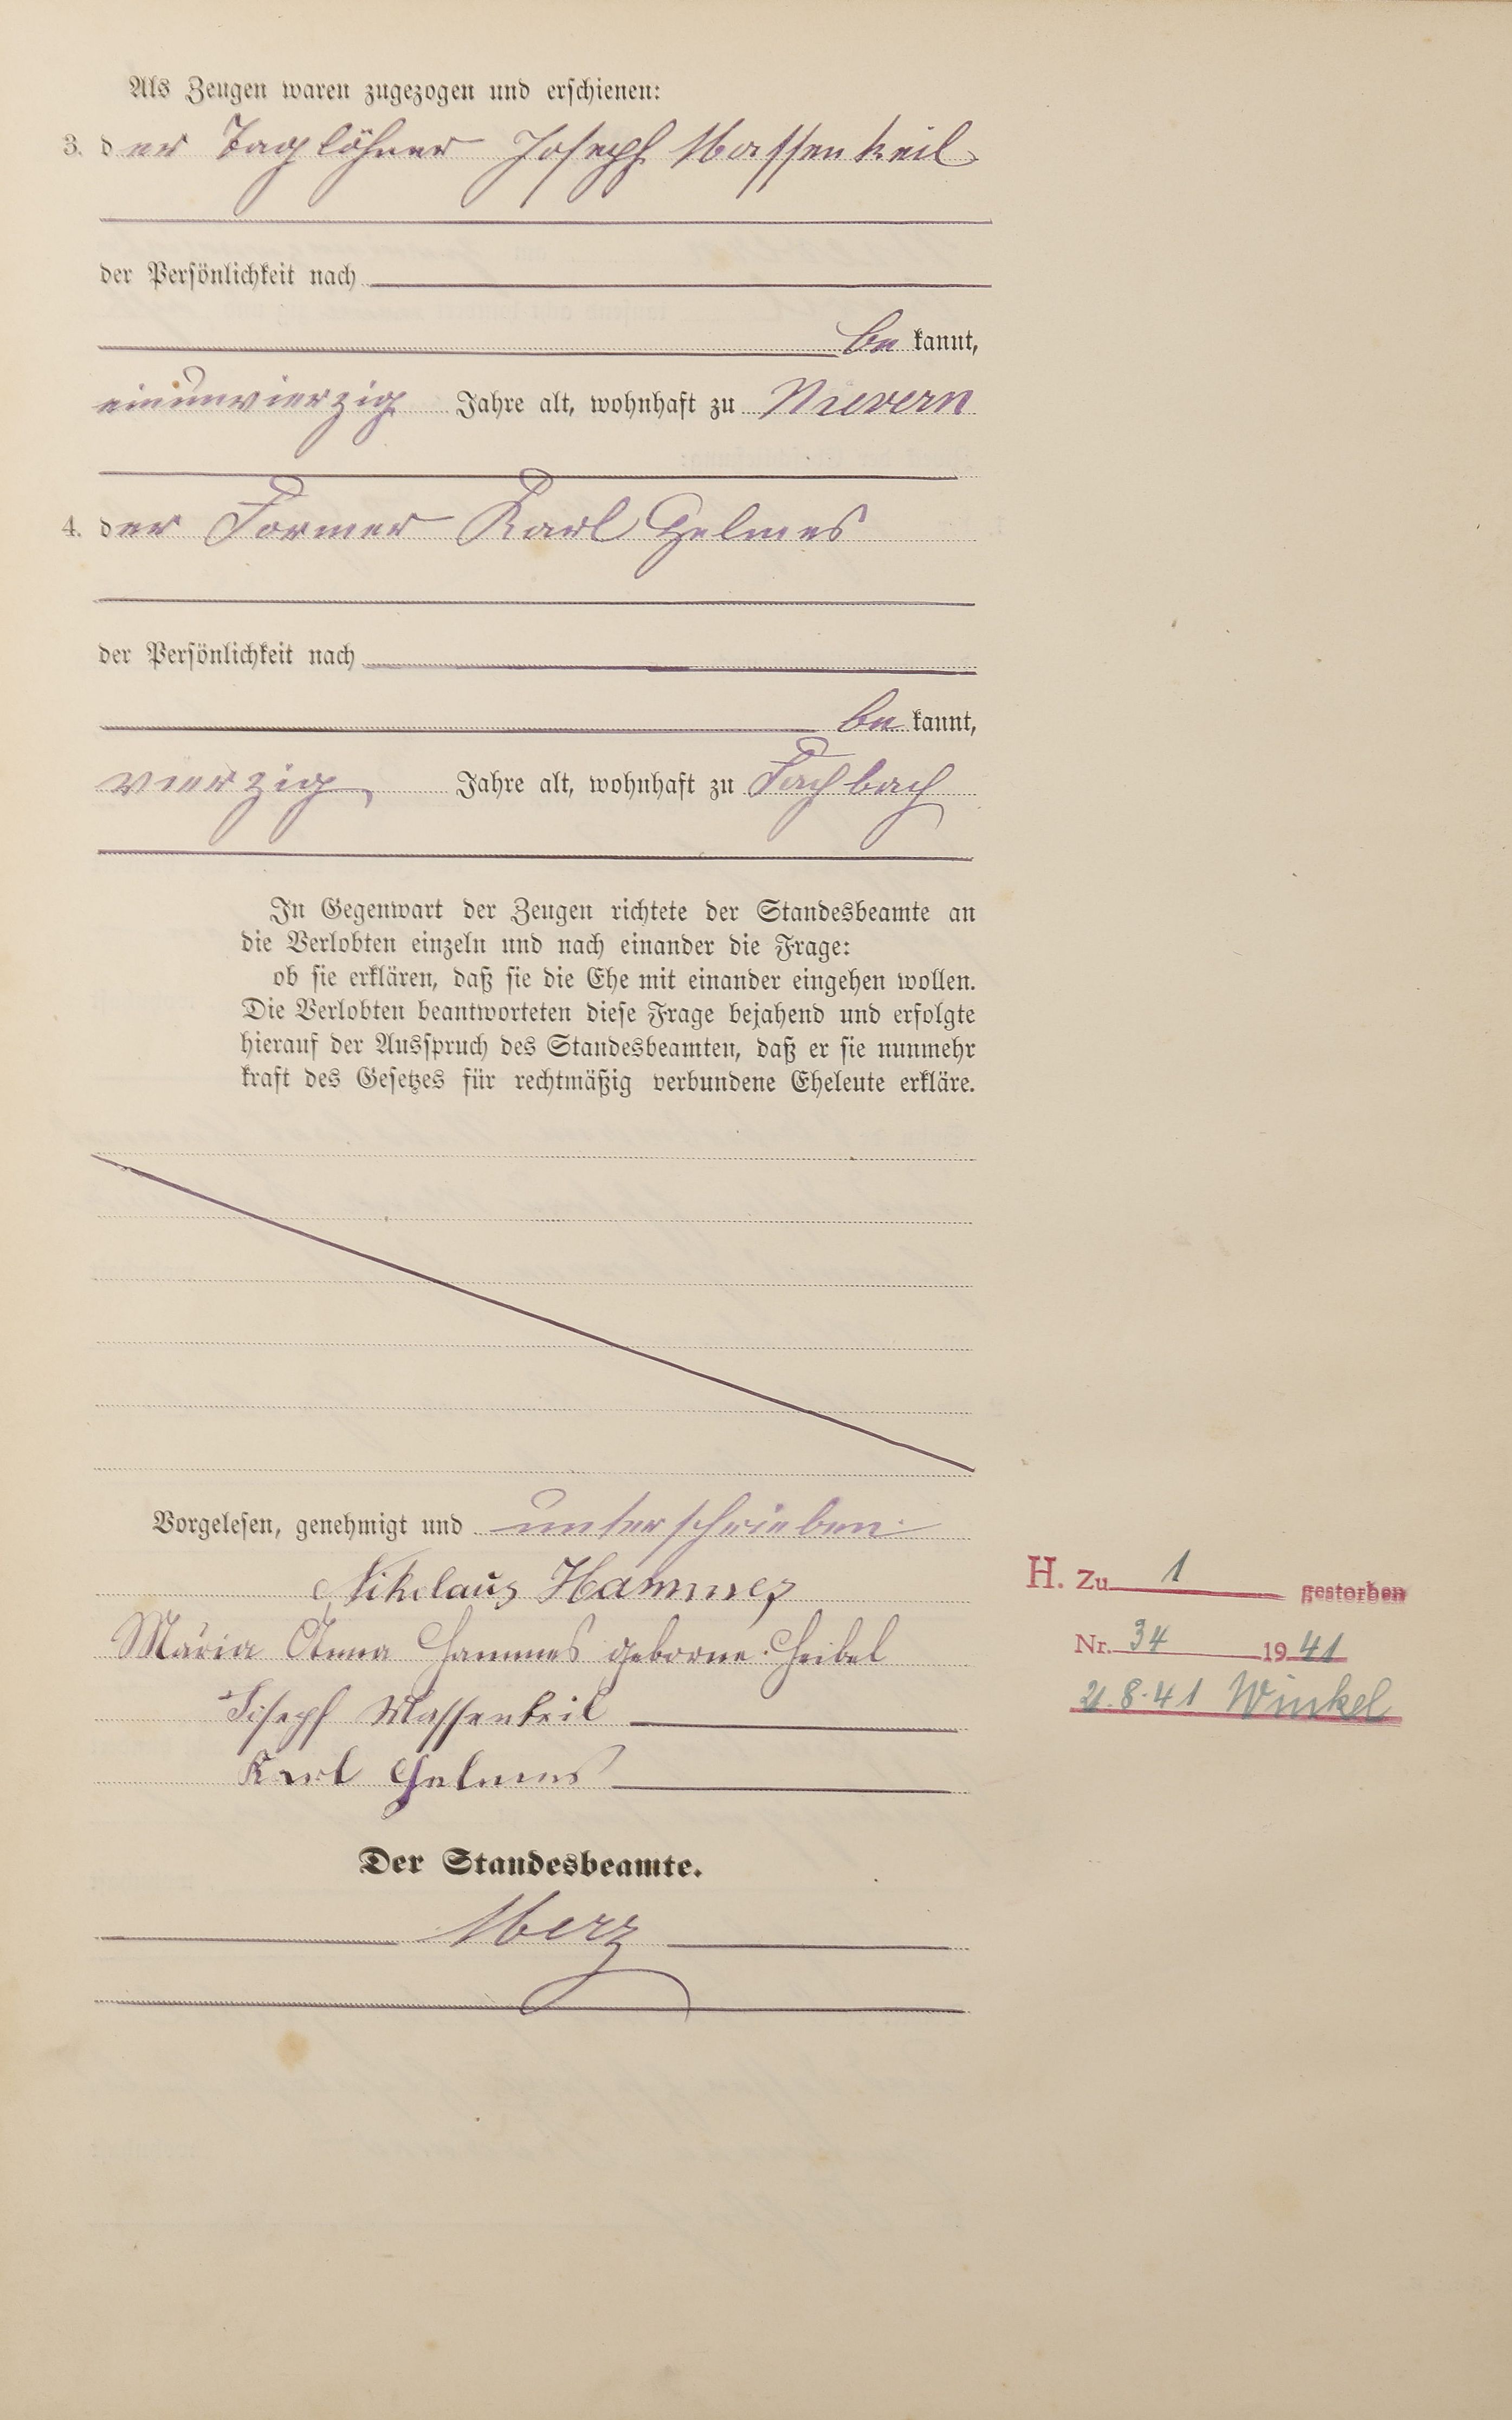 Als Zeugen waren zugezogen und erschienen:
3. der Taglöhner Joseph Massenkeil
der Persönlichkeit nach
bekannt,
einunvierzig Jahre alt, wohnhaft zu Nievern
4. der Former Karl Helmes
der Persönlichkeit nach
bekannt,
vierzig, Jahre alt, wohnhaft zu Fachbach
In Gegenwart der Zeugen richtete der Standesbeamte an
die Verlobten einzeln und nach einander die Frage:
ob sie erklären, daß sie die Ehe mit einander eingehen wollen.
Die Verlobten beantworteten diese Frage bejahend und erfolgte
hierauf der Ausspruch des Standesbeamten, daß er sie nunmehr
kraft des Gesetzes für rechtmäßig verbundene Eheleute erkläre.
Vorgelesen, genehmigt und unterschrieben.
Nikolaus Hammes
Maria Anna Hammes geborne Heibel
Joseph Massenkeil
Karl Helmes
Der Standesbeamte.
Merz
H. Zu 1 gestorben
Nr. 34 1941
21.8.41 Winkel